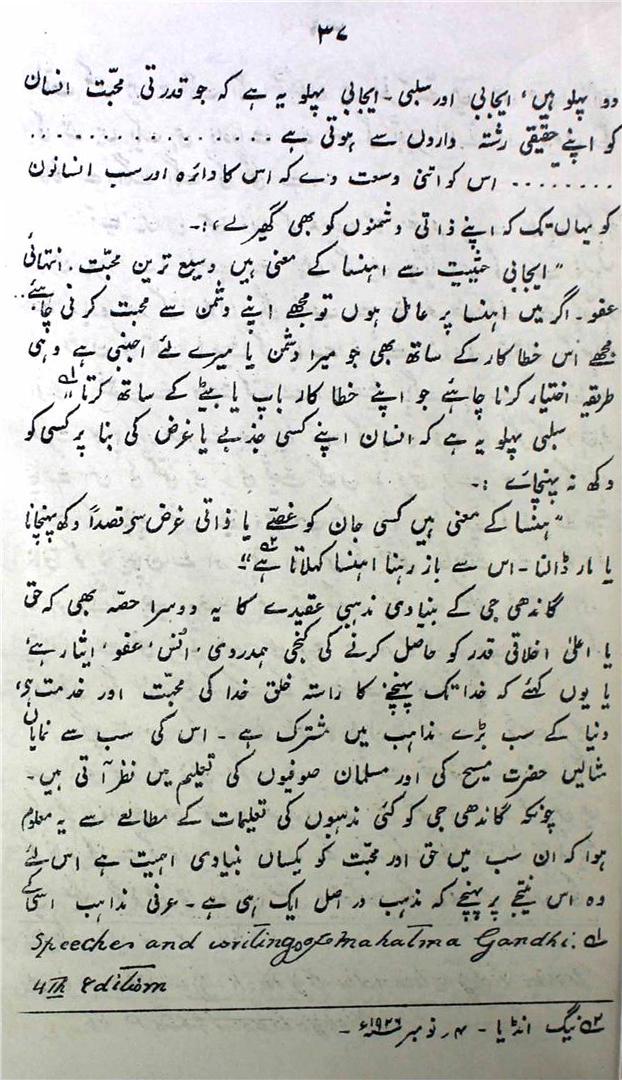 ۳۷
دو پہلو ہیں، ایجابی اور سلبی۔ ایجابی پہلو یہ ہے کہ جو قدرتی محبّت انسان
کو اپنے حقیقی رشتہ داروں سے ہوتی ہے ................
........ اس کو اتنی وسعت دے کہ اس کا دائرہ اور سب انسانوں
کو یہاں تک کہ اپنے ذاتی دشمنوں کو بھی گھیر لے،:۔
"ایجابی حیثیت سے اہنسا کے معنی ہیں وسیع ترین محبّت۔ انتہائی
عفو۔ اگر میں اہنسا پر عامل ہوں تو مجھے اپنے دشمن سے محبت کرنی چاہئے..
مجھے اس خطا کار کے ساتھ بھی جو میرا دشمن یا میرے لئے اجنبی ہے وہی
طریقہ اختیار کرنا چاہئے جو اپنے خطا کار باپ یا بیٹے کے ساتھ کرتا"۱؎
سلبی پہلو یہ ہے کہ انسان اپنے کسی جذبے یا غرض کی بنا پر کسی کو
دکھ نہ پہنچائے :۔
"ہنسا کے معنی ہیں کسی جان کو غصّے یا ذاتی غرض سے قصداً دکھ پہنچانا
یا مار ڈالنا۔ اس سے باز رہنا اہنسا کہلاتا ہے"۲؎
گاندھی جی کے بنیادی مذہبی عقیدے کا یہ دوسرا حصّہ بھی کہ حق
یا اعلیٰ اخلاقی قدر کو حاصل کرنے کی کنجی ہمدردی، اُنس، عفو، ایثار ہے،
یا یوں کہئے کہ خدا تک پہنچنے کا راستہ خلق خدا کی محبّت اور خدمت ہی،
دنیا کے سب بڑے مذاہب میں مشترک ہے۔ اس کی سب سے نمایاں
مثالیں حضرت مسیح کی اور مسلمان صوفیوں کی تعلیم میں نظر آتی ہیں۔
چونکہ گاندھی جی کو کئی مذہبوں کی تعلیمات کے مطالعے سے یہ معلوم
ہوا کہ ان سب میں حق اور محبّت کو یکساں بنیادی اہمیت ہے اس لئے
وہ اس نتیجے پر پہنچے کہ مذہب در اصل ایک ہی ہے۔ عرفی مذاہب اسی کے
۱؎ Speeches and writings of Mahatma Gandhi.
4th Edition
۲؎ ینگ انڈیا۔ ۴ر نومبر ۱۹۲۶ء۔